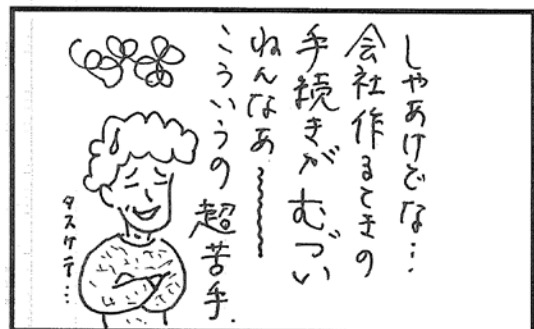 しゃあけどな…
会社作るときの
手続きがむづい
ねんなあ〜〜〜
こういうの超苦手.
タスケテ…